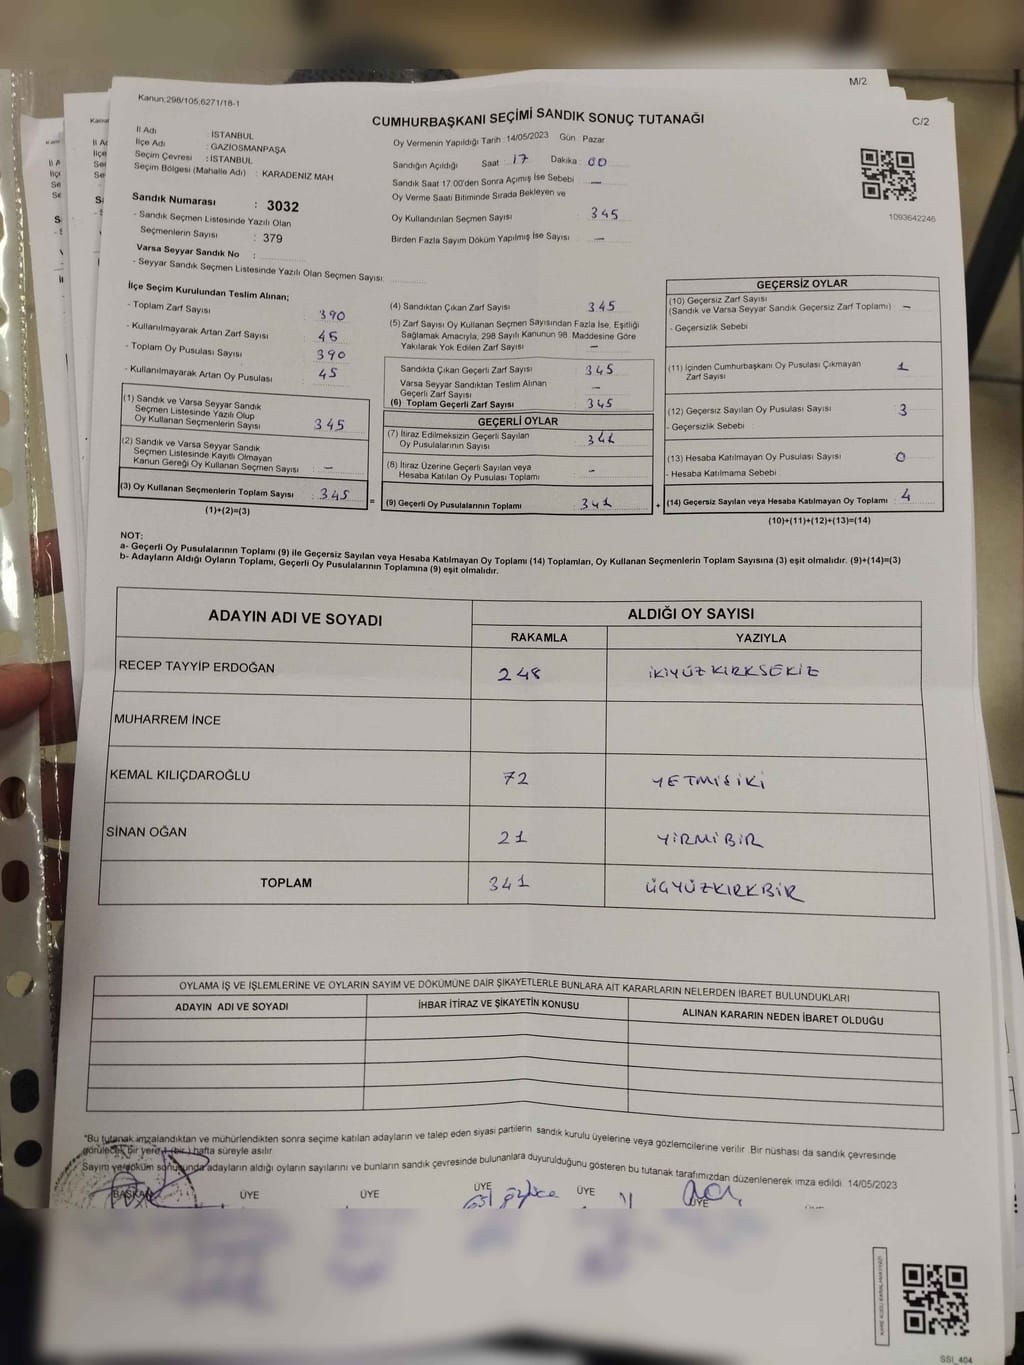 M/2
Kanun;298/105,6271/18-1
CUMHURBAŞKANI SEÇİMİ SANDIK SONUÇ TUTANAĞI
C/2
İl Adı : İSTANBUL
İlçe Adı : GAZİOSMANPAŞA
Seçim Çevresi : İSTANBUL
Seçim Bölgesi (Mahalle Adı) : KARADENİZ MAH
Oy Vermenin Yapıldığı Tarih 14/05/2023 Gün Pazar
Sandığın Açıldığı Saat 17 Dakika 00
Sandık Saat 17:00'den Sonra Açımış İse Sebebi —
Oy Verme Saati Bitiminde Sırada Bekleyen ve
Oy Kullandırılan Seçmen Sayısı 345
Birden Fazla Sayım Döküm Yapılmış İse Sayısı —
1093642246
Sandık Numarası : 3032
- Sandık Seçmen Listesinde Yazılı Olan
Seçmenlerin Sayısı : 379
Varsa Seyyar Sandık No :
- Seyyar Sandık Seçmen Listesinde Yazılı Olan Seçmen Sayısı:
İlçe Seçim Kurulundan Teslim Alınan;
- Toplam Zarf Sayısı 390
- Kullanılmayarak Artan Zarf Sayısı 45
- Toplam Oy Pusulası Sayısı 390
- Kullanılmayarak Artan Oy Pusulası 45
(1) Sandık ve Varsa Seyyar Sandık
Seçmen Listesinde Yazılı Olup
Oy Kullanan Seçmenlerin Sayısı 345
(2) Sandık ve Varsa Seyyar Sandık
Seçmen Listesinde Kayıtlı Olmayan
Kanun Gereği Oy Kullanan Seçmen Sayısı —
(3) Oy Kullanan Seçmenlerin Toplam Sayısı 345 =
(1)+(2)=(3)
(4) Sandıktan Çıkan Zarf Sayısı 345
(5) Zarf Sayısı Oy Kullanan Seçmen Sayısından Fazla İse, Eşitliği
Sağlamak Amacıyla, 298 Sayılı Kanunun 98. Maddesine Göre
Yakılarak Yok Edilen Zarf Sayısı —
Sandıkta Çıkan Geçerli Zarf Sayısı 345
Varsa Seyyar Sandıktan Teslim Alınan
Geçerli Zarf Sayısı —
(6) Toplam Geçerli Zarf Sayısı 345
GEÇERLİ OYLAR
(7) İtiraz Edilmeksizin Geçerli Sayılan
Oy Pusulalarının Sayısı 341
(8) İtiraz Üzerine Geçerli Sayılan veya
Hesaba Katılan Oy Pusulası Toplamı -
(9) Geçerli Oy Pusulalarının Toplamı 341 +
GEÇERSİZ OYLAR
(10) Geçersiz Zarf Sayısı
(Sandık ve Varsa Seyyar Sandık Geçersiz Zarf Toplamı) —
- Geçersizlik Sebebi
(11) İçinden Cumhurbaşkanı Oy Pusulası Çıkmayan
Zarf Sayısı 1
(12) Geçersiz Sayılan Oy Pusulası Sayısı 3
- Geçersizlik Sebebi
(13) Hesaba Katılmayan Oy Pusulası Sayısı 0
- Hesaba Katılmama Sebebi
(14) Geçersiz Sayılan veya Hesaba Katılmayan Oy Toplamı 4
(10)+(11)+(12)+(13)=(14)
NOT:
a- Geçerli Oy Pusulalarının Toplamı (9) ile Geçersiz Sayılan veya Hesaba Katılmayan Oy Toplamı (14) Toplamları, Oy Kullanan Seçmenlerin Toplam Sayısına (3) eşit olmalıdır. (9)+(14)=(3)
b- Adayların Aldığı Oyların Toplamı, Geçerli Oy Pusulalarının Toplamına (9) eşit olmalıdır.
ADAYIN ADI VE SOYADI ALDIĞI OY SAYISI
RAKAMLA YAZIYLA
RECEP TAYYİP ERDOĞAN 248 İKİYÜZKIRKSEKİZ
MUHARREM İNCE
KEMAL KILIÇDAROĞLU 72 YETMİSİKİ
SİNAN OĞAN 21 YİRMİBİR
TOPLAM 341 ÜÇYÜZKIRKBİR
OYLAMA İŞ VE İŞLEMLERİNE VE OYLARIN SAYIM VE DÖKÜMÜNE DAİR ŞİKAYETLERLE BUNLARA AİT KARARLARIN NELERDEN İBARET BULUNDUKLARI
ADAYIN ADI VE SOYADI İHBAR İTİRAZ VE ŞİKAYETİN KONUSU ALINAN KARARIN NEDEN İBARET OLDUĞU
*Bu tutanak imzalandıktan ve mühürlendikten sonra seçime katılan adayların ve talep eden siyasi partilerin sandık kurulu üyelerine veya gözlemcilerine verilir. Bir nüshası da sandık çevresinde
görülecek bir yere 1 (bir) hafta süreyle asılır.
Sayım ve döküm sonucunda adayların aldığı oyların sayılarını ve bunların sandık çevresinde bulunanlara duyurulduğunu gösteren bu tutanak tarafımızdan düzenlenerek imza edildi. 14/05/2023
BAŞKAN ÜYE ÜYE ÜYE ÜYE ÜYE
SSI_404